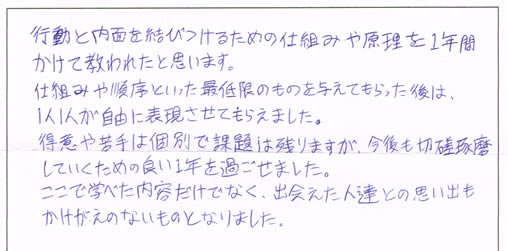 行動と内面を結びつけるための仕組みや原理を1年間
かけて教われたと思います。
仕組みや順序といった最低限のものを与えてもらった後は、
1人1人が自由に表現させてもらえました。
得意や苦手は個別で課題は残りますが、今後も切磋琢磨
していくための良い1年を過ごせました。
ここで学べた内容だけでなく、出会えた人達との思い出も
かけがえのないものとなりました。